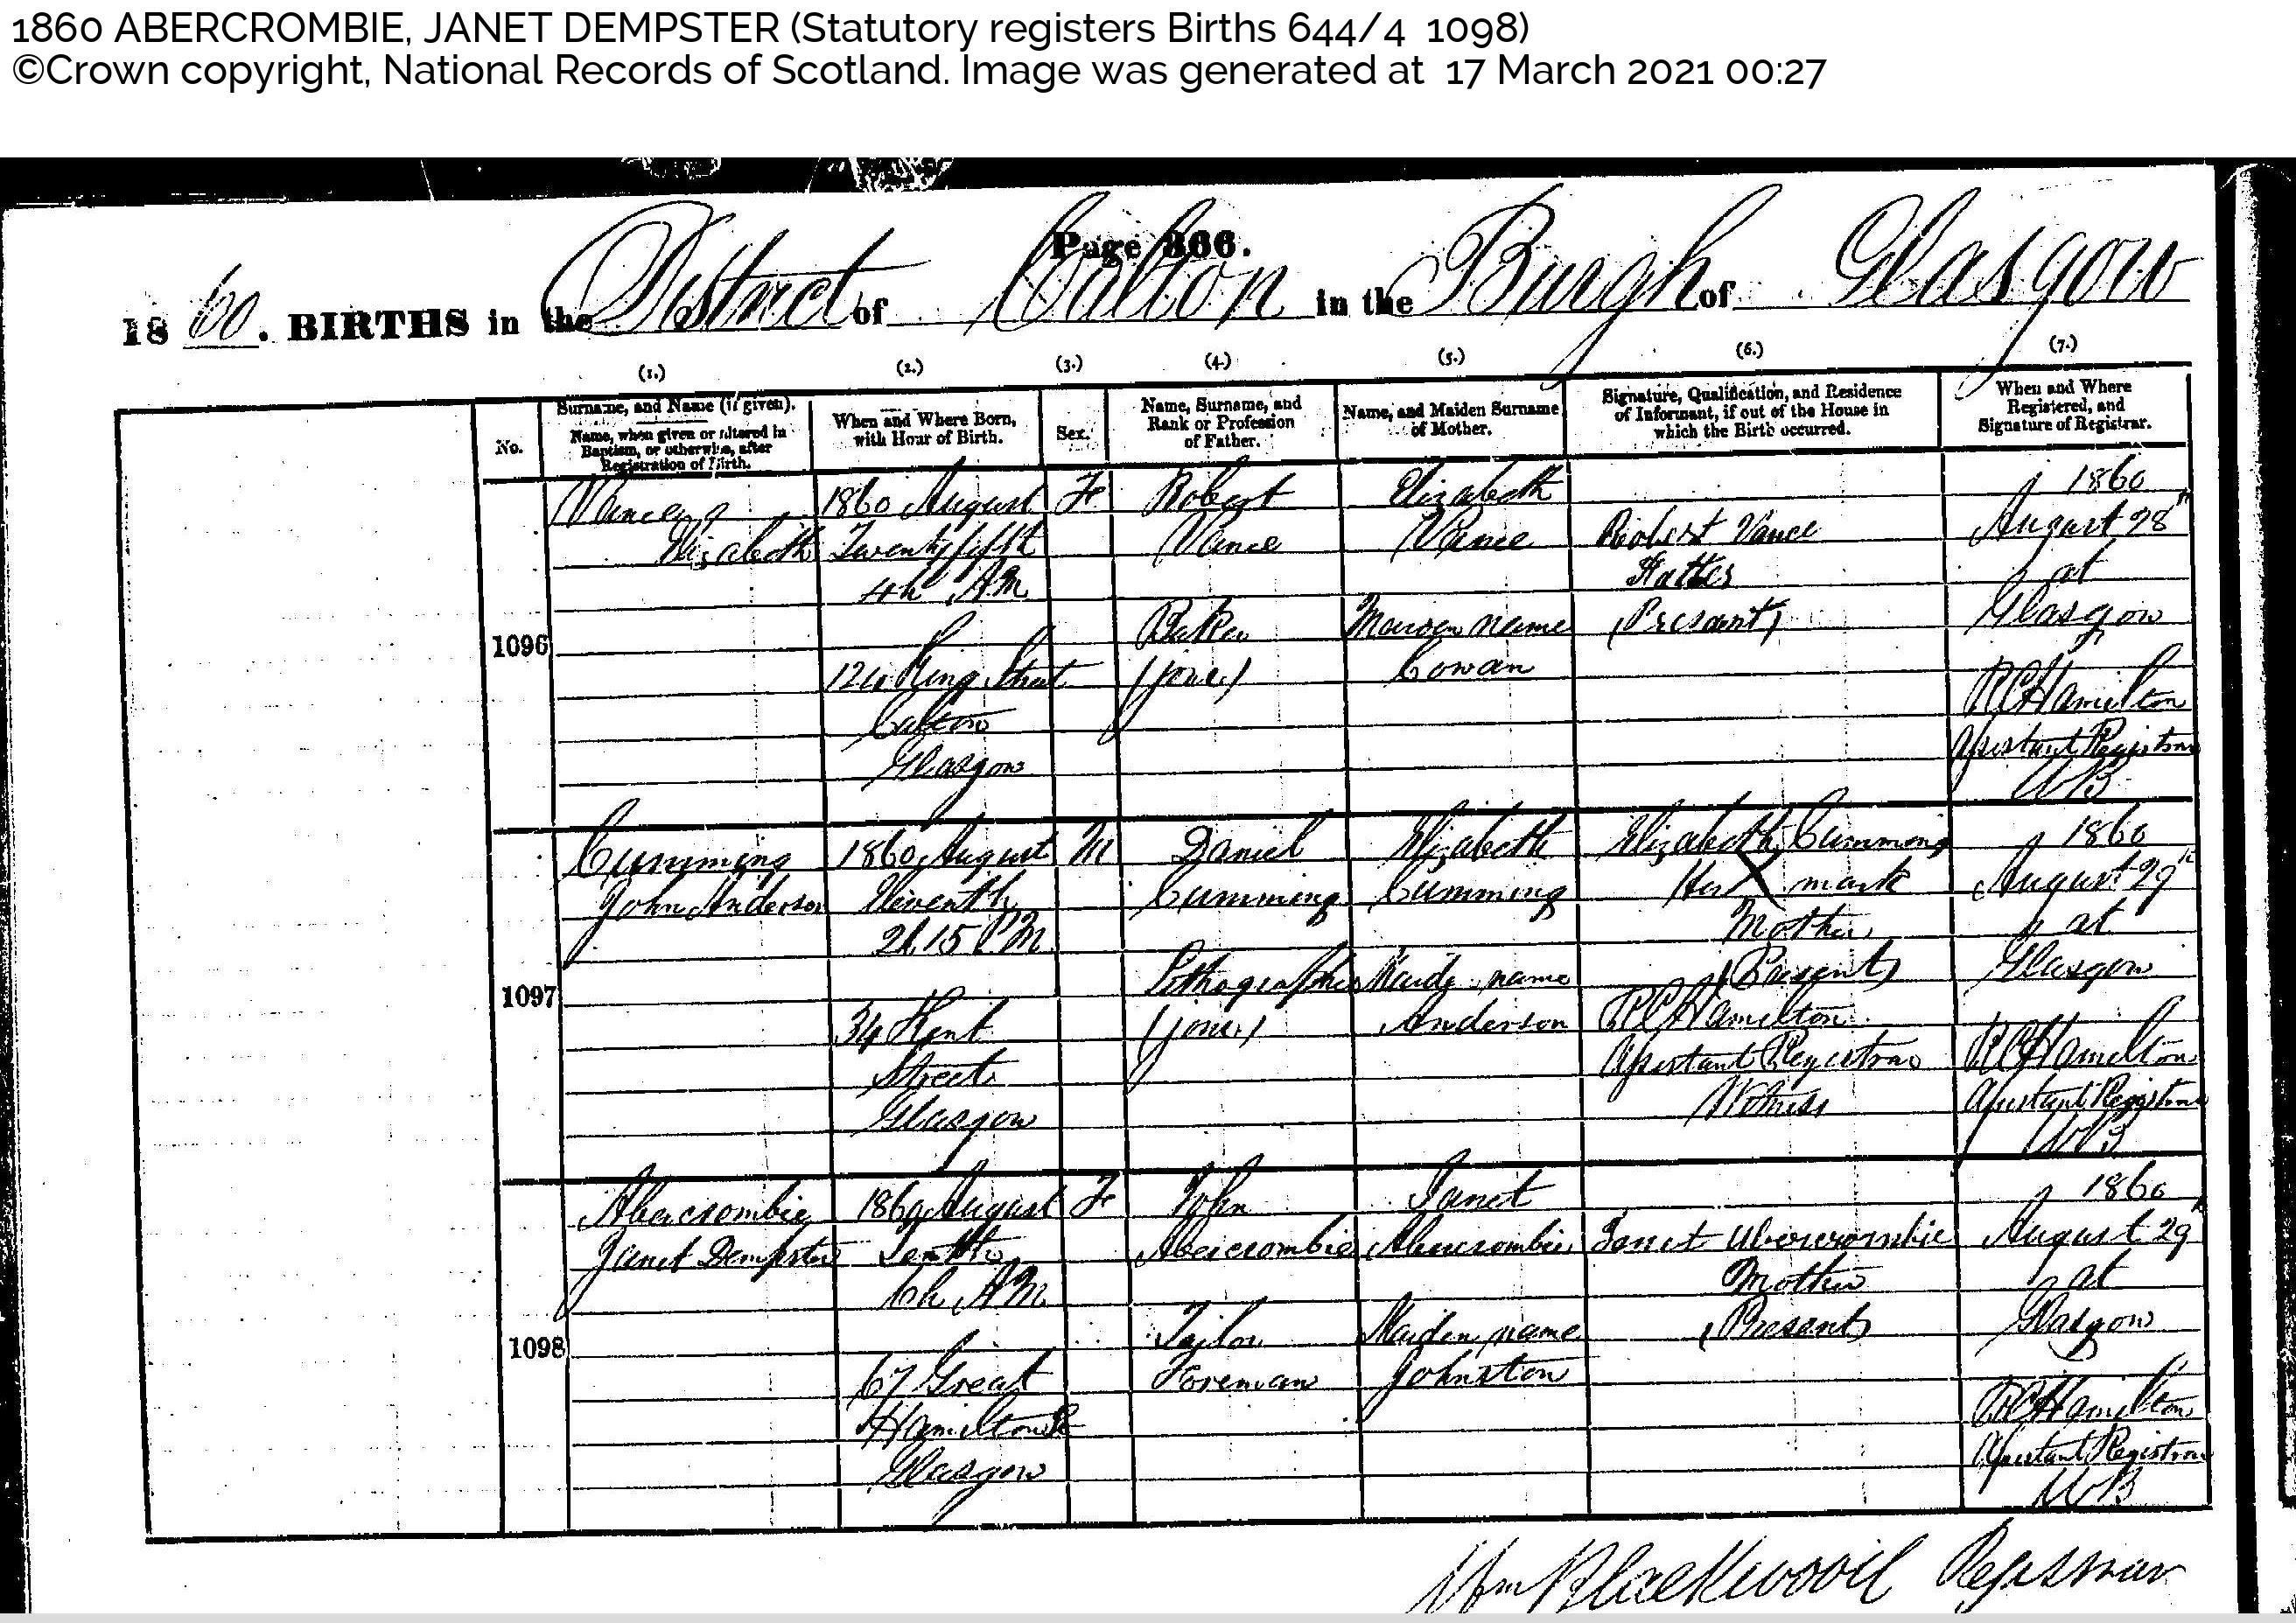 1860 ABERCROMBIE, JANET DEMPSTER (Statutory registers Births 644/4 1098)
©Crown copyright, National Records of Scotland. Image was generated at 17 March 2021 00:27
Page 366.
1860. BIRTHS in the District of Calton in the Burgh of Glasgow
(1.) (2.) (3.) (4.) (5.) (6.) (7.)
No.
Surname, and Name (if given).
Name, when given or altered in
Baptism, or otherwise, after
Registration of Birth.
When and Where Born,
with Hour of Birth.
Sex.
Name, Surname, and
Rank or Profession
of Father.
Name, and Maiden Surname
of Mother.
Signature, Qualification, and Residence
of Informant, if out of the House in
which the Birth occurred.
When and Where
Registered, and
Signature of Registrar.
1096
Vance
Elizabeth
1860 August
Twenty fifth
4h AM
124 King Street
Calton
Glasgow
Fe
Robert
Vance
Baker
(jour.)
Elizabeth
Vance
Maiden name
Cowan
Robert Vance
Father
(Present)
1860
August 28th
at
Glasgow
R C Hamilton
Assistant Registrar
WB
1097
Cumming
John Anderson
1860 August
Eleventh
2h 15 PM
34 Kent
Street
Glasgow
M
Daniel
Cumming
Lithographer
(jour.)
Elizabeth
Cumming
Maiden name
Anderson
Elizabeth Cumming
Her X mark
Mother
(Present)
R C Hamilton
Assistant Registrar
Witness
1860
August 29th
at
Glasgow
R C Hamilton
Assistant Registrar
WB
1098
Abercrombie
Janet Dempster
1860 August
Tenth
6h AM
67 Great
Hamilton St
Glasgow
Fe
John
Abercrombie
Tailor
Foreman
Janet
Abercrombie
Maiden name
Johnston
Janet Abercrombie
Mother
(Present)
1860
August 29th
at
Glasgow
R C Hamilton
Assistant Registrar
WB
Wm Blackwood Registrar